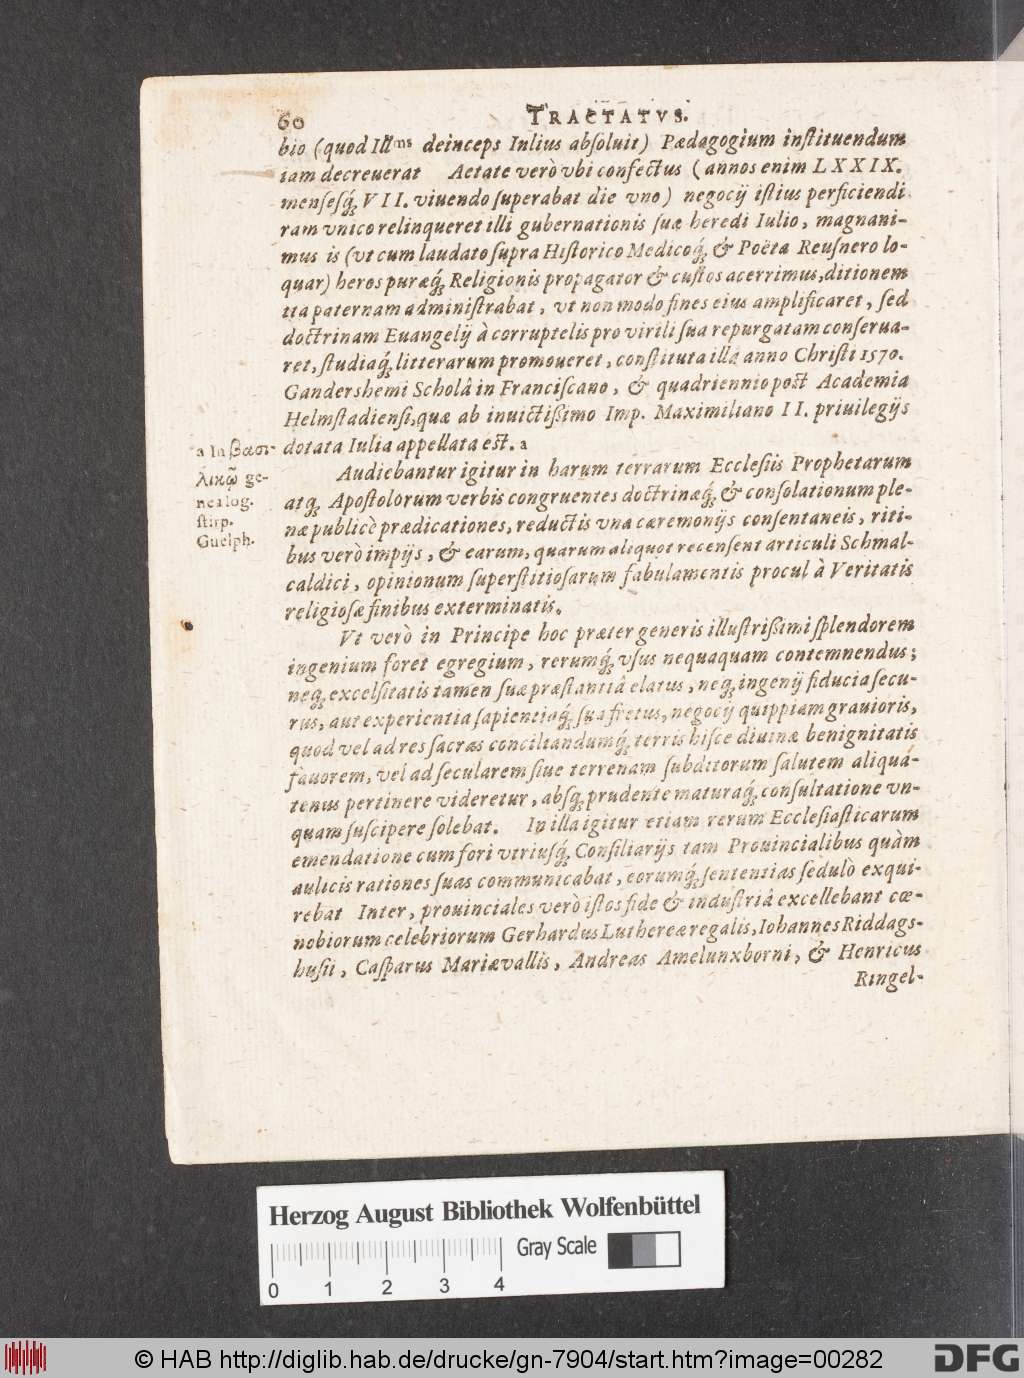 60 TRACTATVS.
bio (quod Ill.ms deinceps Iulius absoluit) Pædagogium instituendum
iam decreuerat Aetate verò vbi confectus (annos enim LXXIX.
mensesq́; VII. viuendo superabat die vno) negocij istius perficiendi
ram vnico relinqueret illi gubernationis suæ heredi Iulio, magnani-
mus is (vt cum laudato supra Historico Medicoq́; & Poëta Reusnero lo-
quar) heros puræq́; Religionis propagator & custos acerrimus, ditionem
ita paternam administrabat, vt non modo fines eius amplificaret, sed
doctrinam Euangelij à corruptelis pro virili sua repurgatam conserua-
ret, studiaq́; litterarum promoueret, constituta illâ anno Christi 1570.
Gandershemi Scholâ in Franciscano, & quadriennio post Academia
Helmstadiensi, quæ ab inuictißimo Imp. Maximiliano II. priuilegijs
dotata Iulia appellata est. a
a In βασι-
λικῷ ge-
nealog.
stirp.
Guelph.
Audiebantur igitur in harum terrarum Ecclesiis Prophetarum
atq; Apostolorum verbis congruentes doctrinæq́; & consolationum ple-
næ publicè prædicationes, reductis vna cæremonijs consentaneis, riti-
bus verò impijs, & earum, quarum aliquot recensent articuli Schmal-
caldici, opinionum superstitiosarum fabulamentis procul à Veritatis
religiosæ finibus exterminatis.
Vt verò in Principe hoc præter generis illustrißimi splendorem
ingenium foret egregium, rerumq́; vsus nequaquam contemnendus;
neq; excelsitatis tamen suæ præstantiâ elatus, neq; ingenij fiducia secu-
rus, aut experientia sapientiaq́; sua fretus, negocij quippiam grauioris,
quod vel ad res sacras conciliandumq́; terris hisce diuinæ benignitatis
fauorem, vel ad secularem siue terrenam subditorum salutem aliquá-
tenus pertinere videretur, absq; prudente maturaq́; consultatione vn-
quam suscipere solebat. In illa igitur etiam rerum Ecclesiasticarum
emendatione cum fori vtriusq́; Consiliarijs tam Prouincialibus quàm
aulicis rationes suas communicabat, eorumq́; sententias sedulò exqui-
rebat Inter, prouinciales verò istos fide & industriâ excellebant cœ-
nobiorum celebriorum Gerhardus Luthereæ regalis, Iohannes Riddags-
husii, Casparus Mariævallis, Andreas Amelunxborni, & Henricus
Ringel-
Herzog August Bibliothek Wolfenbüttel
Gray Scale
0 1 2 3 4
© HAB http://diglib.hab.de/drucke/gn-7904/start.htm?image=00282
DFG